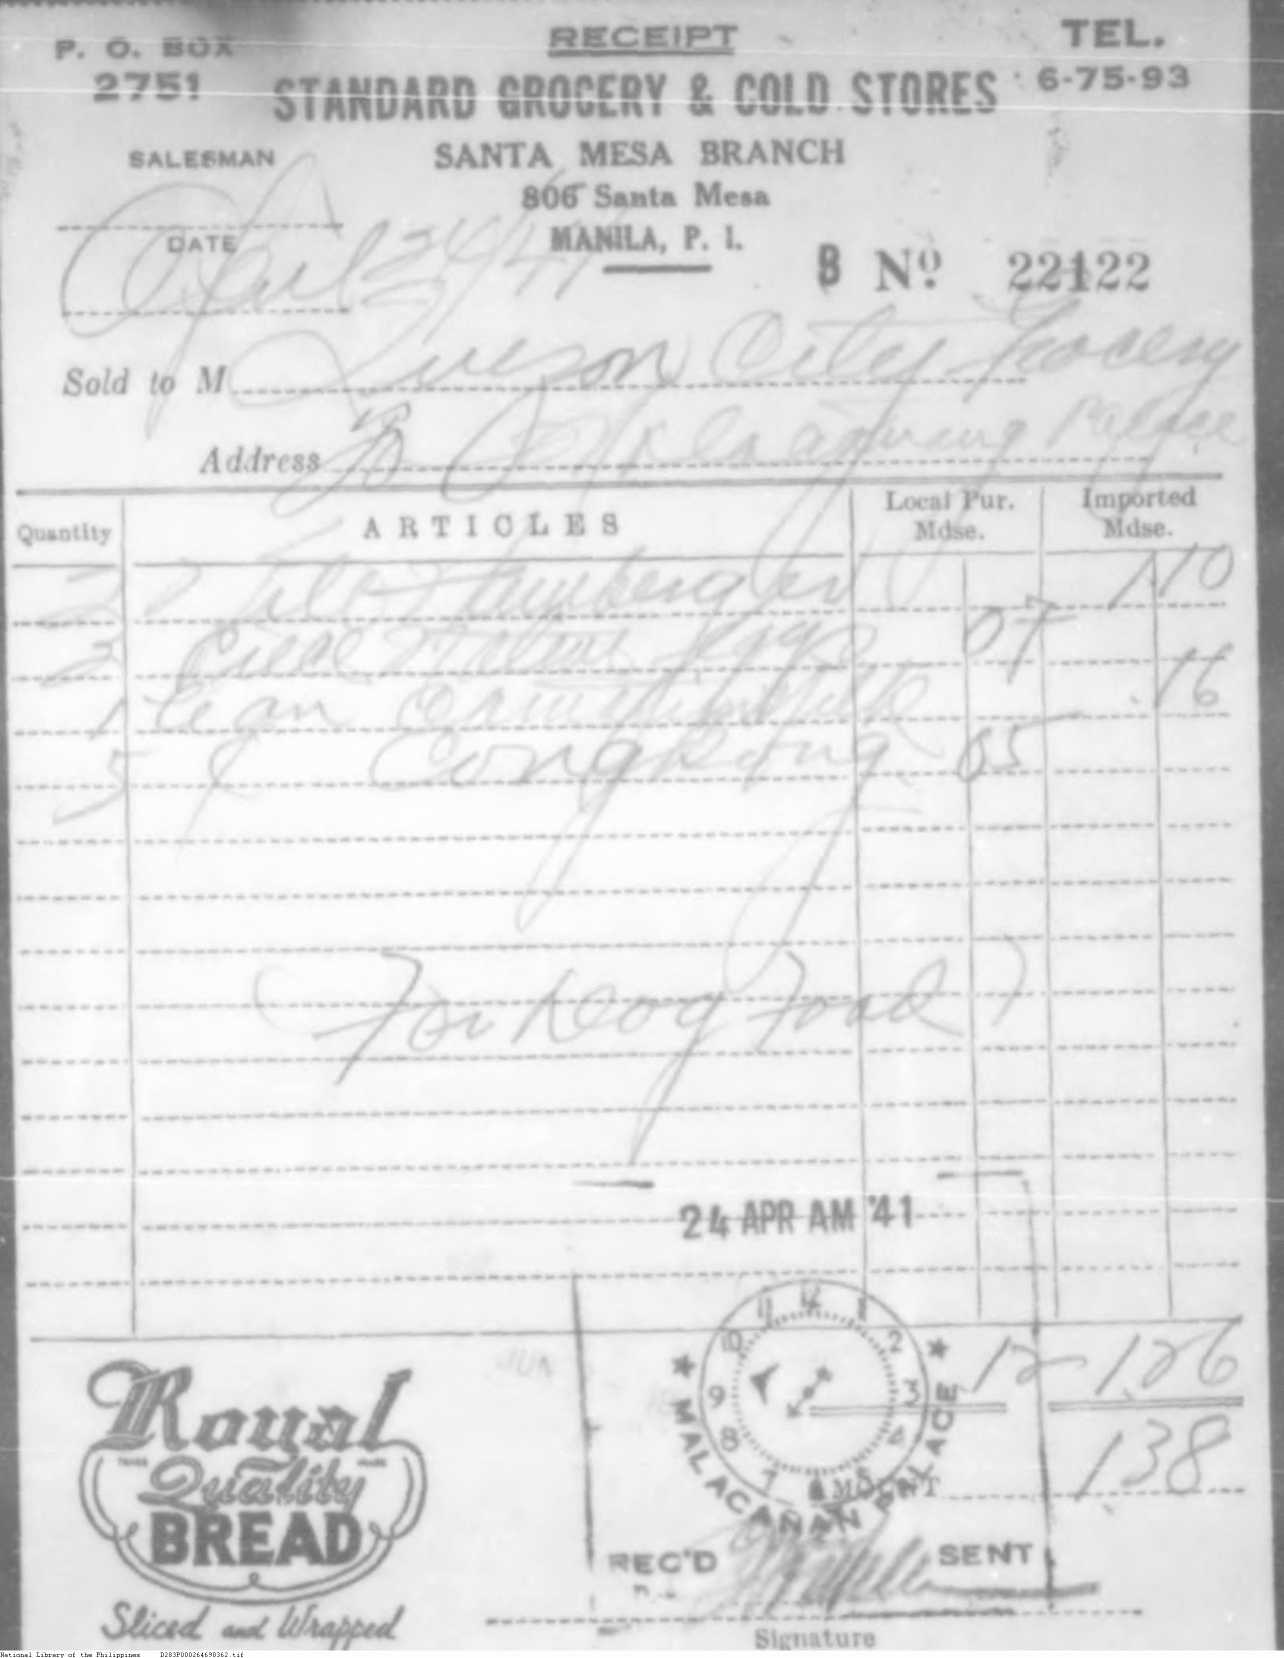 RECEIPT
P. O. BOX
2751
TEL.
6-75-93
STANDARD GROCERY & COLD STORES
SALESMAN
SANTA MESA BRANCH
806 Santa Mesa
MANILA, P. I.
DATE
April 24/41
B Nº 22122
Sold to M Quezon City Grocery
Address Malacañang Palace
Quantity ARTICLES Local Pur. Mdse. Imported Mdse.
2 Kilo Hamberger 1.10
2 Piece Native Eggs 07
1 Can Milk .16
5 ¢ Congkong 05
(For Dog Food)
24 APR AM '41
12 1.26
138
MALACAÑAN PALACE
12 1 2 3 4 5 7 8 9 10 11
AMOUNT
REC'D SENT
Signature
JUN
Royal
TRADE MARK
Quality
BREAD
Sliced and Wrapped
National Library of the Philippines D283P000264698362.tif